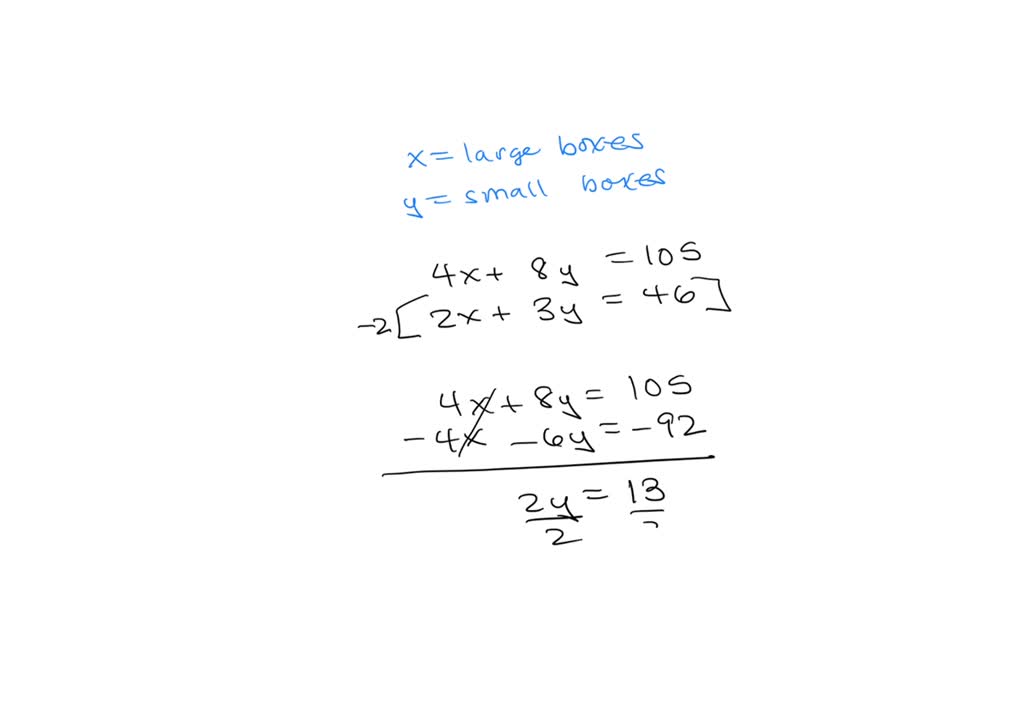 x = large boxes
y = small boxes
4x + 8y = 105
-2[2x + 3y = 46]
4x + 8y = 105
-4x - 6y = -92
2y = 13
2